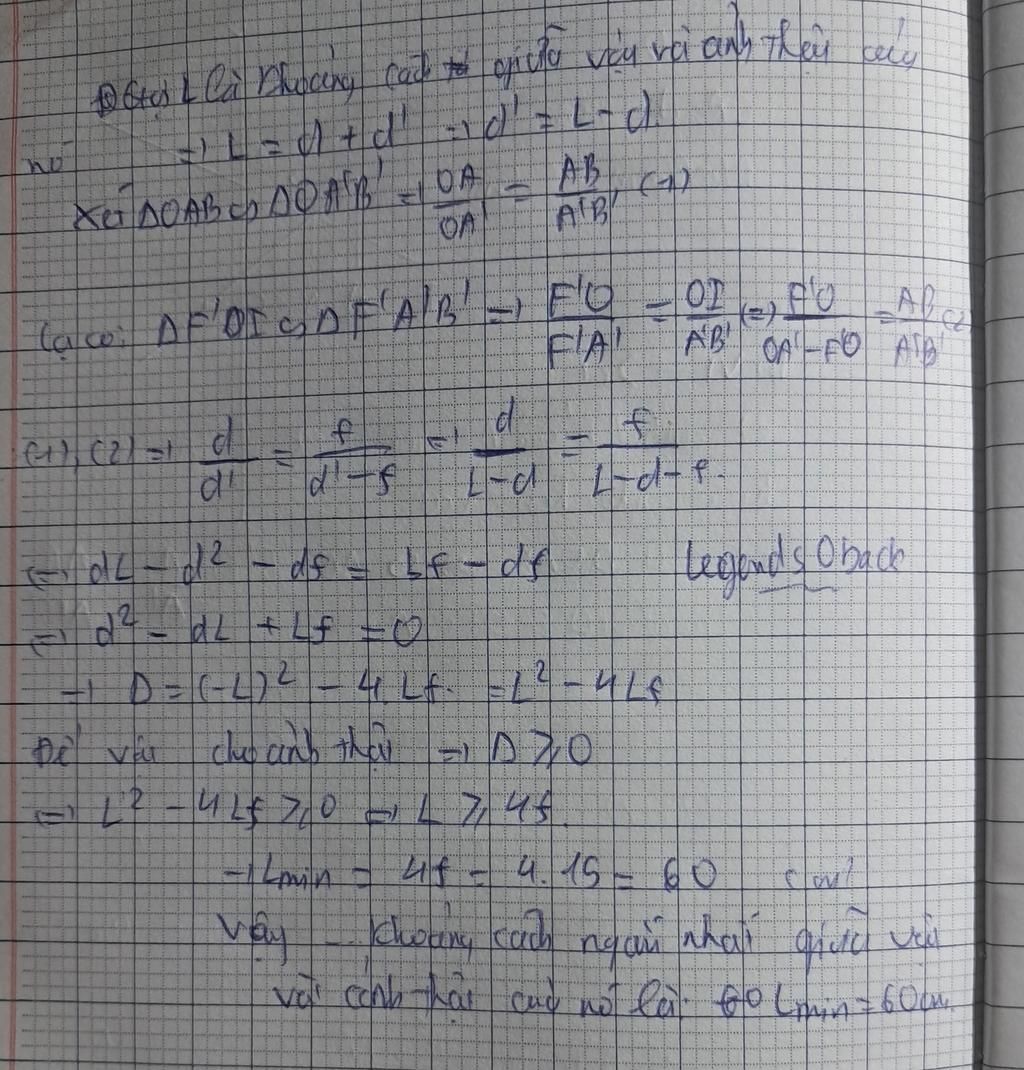 Gọi L là khoảng cách giữa vật với ảnh thật của
nó => L = d + d' => d' = L - d
Xét ΔOAB ∽ ΔOA'B' => OA/OA' = AB/A'B' (1)
Lại có: ΔF'OI ∽ ΔF'A'B' => F'O/F'A' = OI/A'B' <=> F'O/OA'-F'O = AB/A'B' (2)
(1), (2) => d/d' = f/d'-f => d/L-d = f/L-d-f.
<=> dL - d² - df = Lf - df
LegendsOback
<=> d² - dL + Lf = 0
=> Δ = (-L)² - 4.Lf. = L² - 4Lf
Để vật cho ảnh thật => Δ ⩾ 0
<=> L² - 4Lf ⩾ 0 <=> L ⩾ 4f.
=> Lmin = 4f = 4.15 = 60 (cm)
Vậy khoảng cách ngắn nhất giữa vật
với ảnh thật của nó là: Lmin = 60cm.